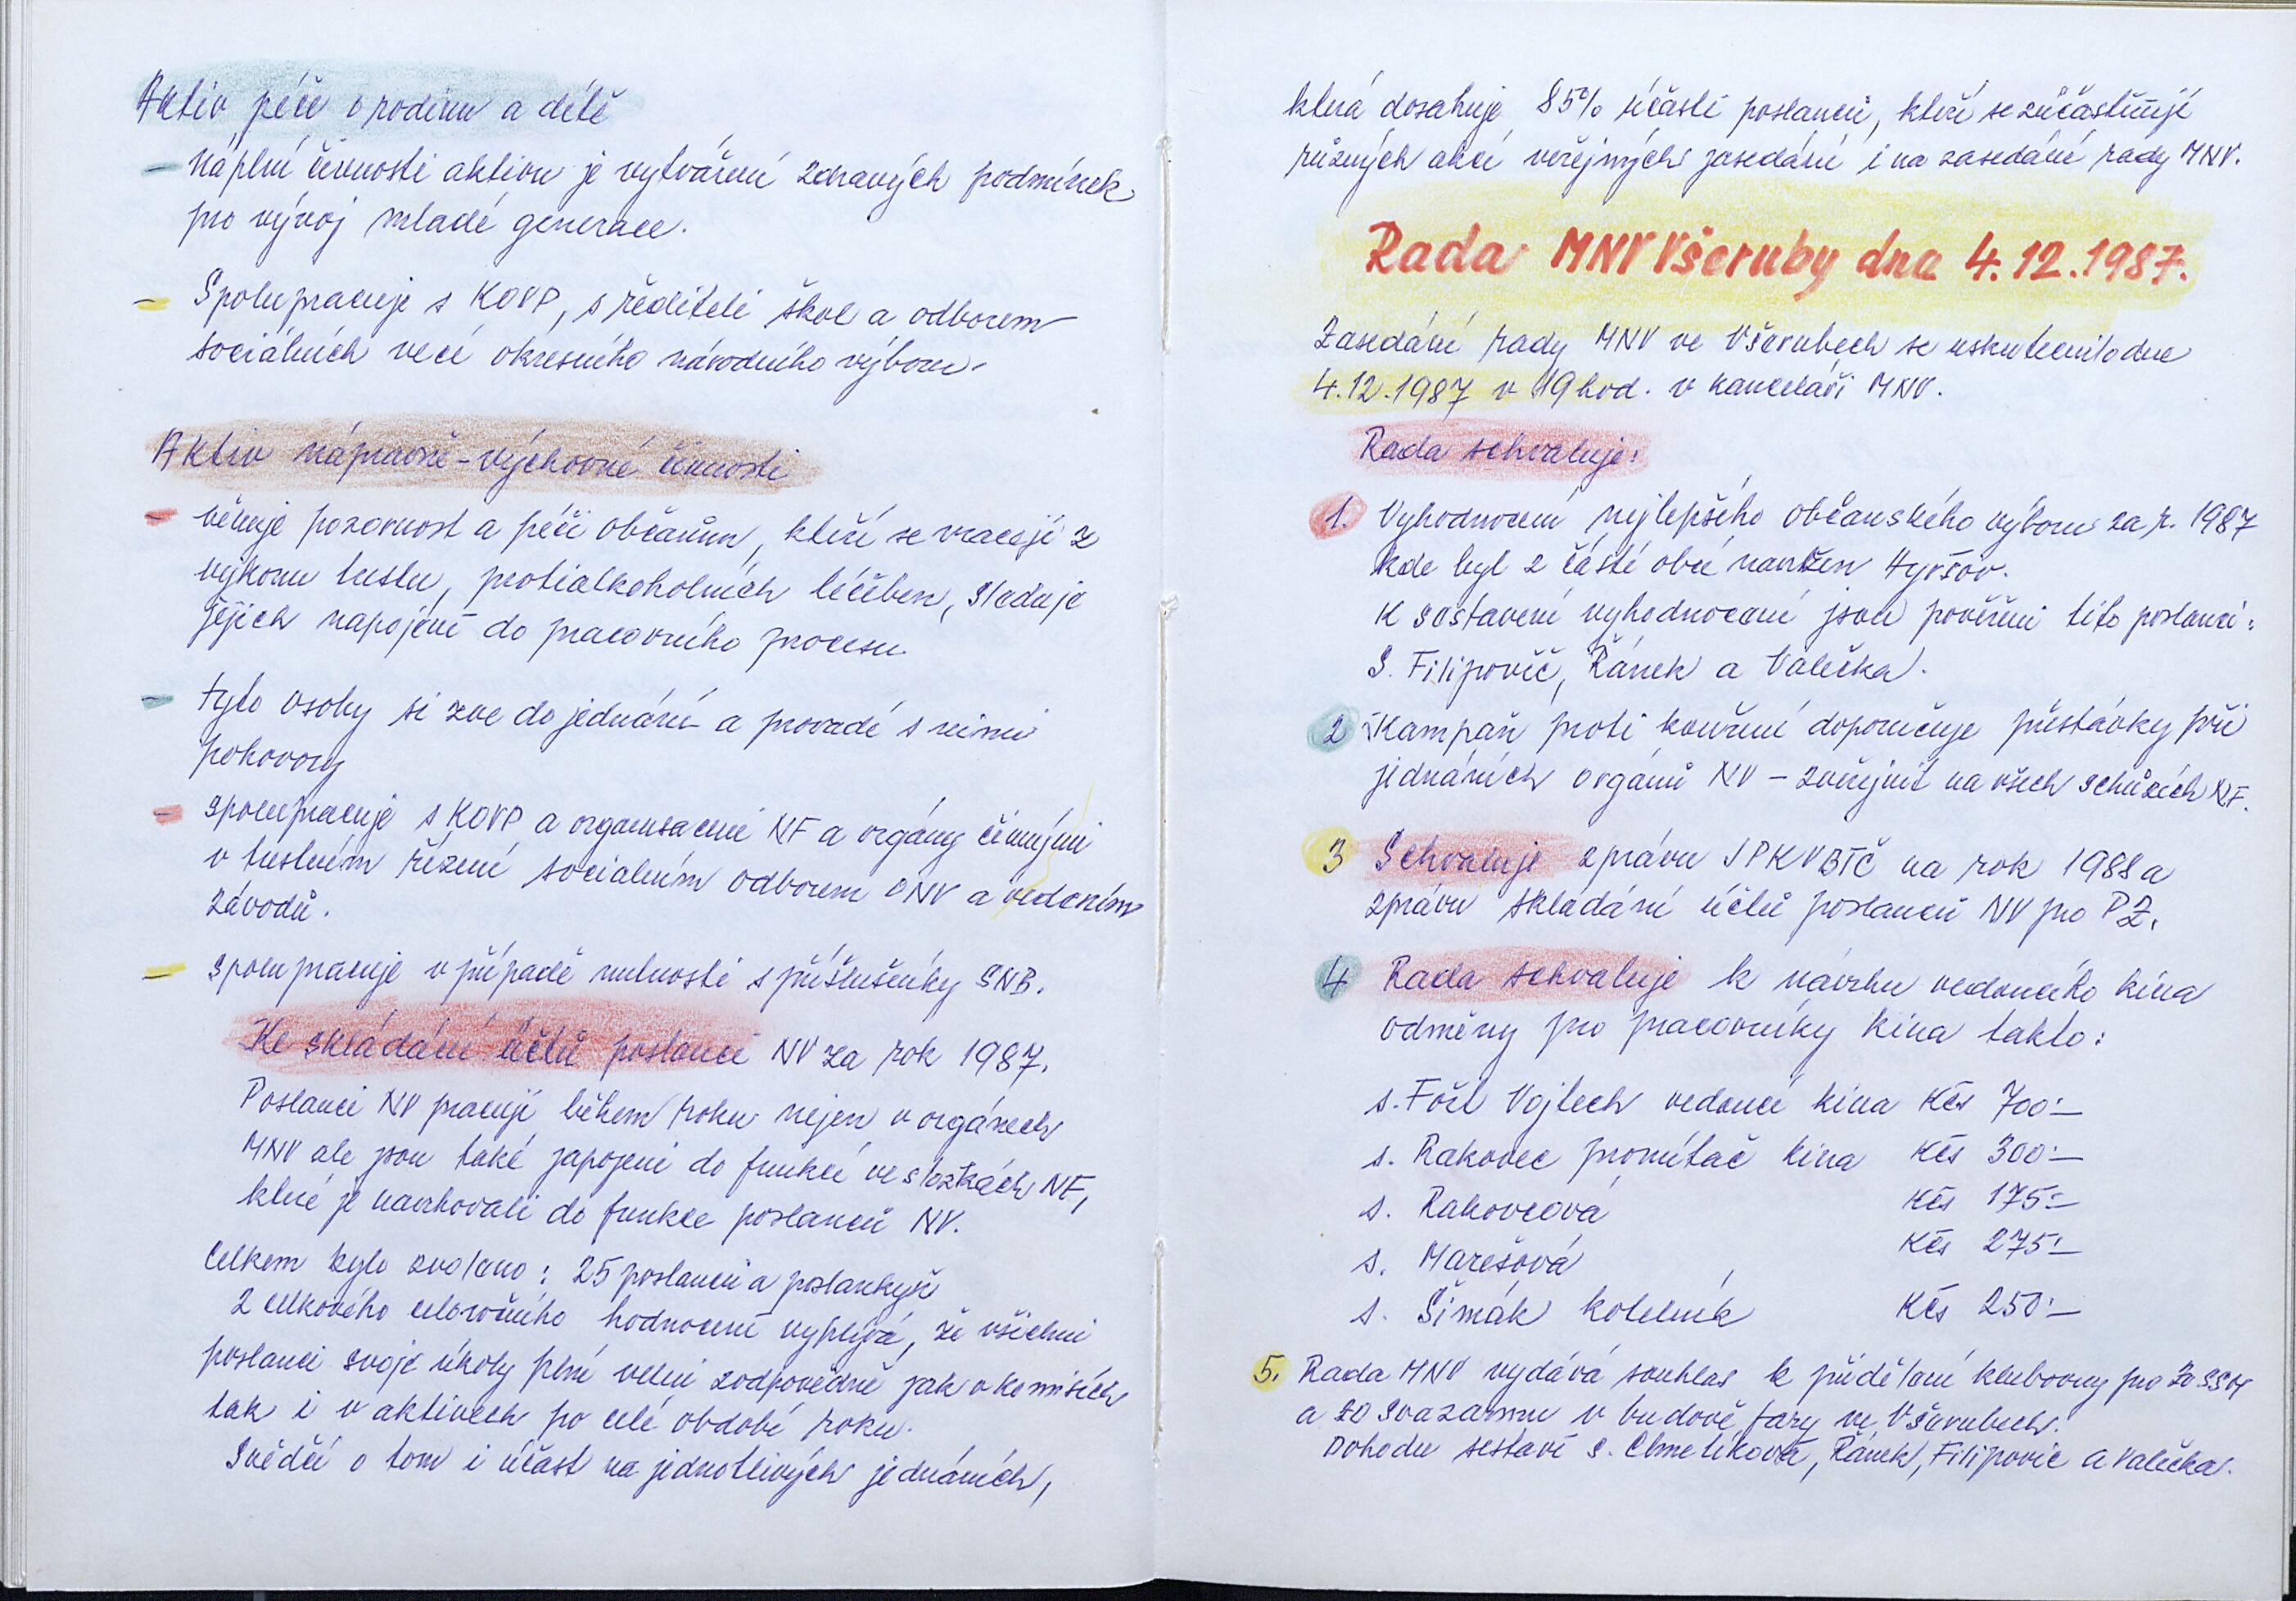 Aktiv péče o rodinu a dítě
- náplní činnosti aktivu je vytváření zdravých podmínek
pro vývoj mladé generace.
- Spolupracuje s KOVP, s řediteli škol a odborem
sociálních věcí okresního národního výboru.
Aktiv nápravně-výchovné činnosti
- věnuje pozornost a péči občanům, kteří se vracejí z
výkonu trestu, protialkoholních léčeben, sleduje
jejich napojení do pracovního procesu
- tyto osoby si zve do jednání a provadí s nimi
pohovory
- spolupracuje s KOVP a organisacemi NF a orgány činnými
v trestním řízení sociálním odborem ONV a vedením
závodů.
- spolupracuje v případě nutnosti s příslušníky SNB.
Ke skládání účtů poslanců NV za rok 1987.
Poslanci NV pracují během roku nejen v orgánech
MNV ale jsou také zapojeni do funkcí ve složkách NF,
které je navrhovali do funkce poslanců NV.
Celkem bylo zvoleno: 25 poslanců a poslankyň
Z celkového celoročního hodnocení vyplývá, že všichni
poslanci svoje úkoly plní velmi zodpovědně jak v komisích
tak i v aktivech po celé období roku.
Svědčí o tom i účast na jednotlivých jednáních,
která dosahuje 85% účasti poslanců, kteří se zúčastňují
různých akcí veřejných zasedání i na zasedání rady MNV.
Rada MNV Všeruby dne 4.12.1987.
Zasedání rady MNV ve Všerubech se uskutečnilo dne
4.12.1987 v 19 hod. v kanceláři MNV.
Rada schvaluje:
1. Vyhodnocení nejlepšího občanského výboru za r. 1987
kde byl z částí obcí navržen Hyršov.
K sostavení vyhodnocení jsou pověřeni tito poslanci:
S. Filipovič, Řánek a Valečka.
2. Kampaň proti kouření doporučuje přestávky při
jednáních orgánů NV - zveřejnit na všech schůzích NF.
3 Schvaluje zprávu JPKVBTČ na rok 1988 a
zprávu skládání účtů poslanců NV pro PZ.
4 Rada schvaluje k návrhu vedoucího kina
odměny pro pracovníky kina takto:
s. Fořt Vojtech vedoucí kina Kčs 700:-
s. Rakovec promítač kina Kčs 300:-
s. Rakovcová Kčs 175:-
s. Marešová Kčs 275:-
s. Šimák kotelník Kčs 250:-
5. Rada MNV vydává souhlas k přidělení klubovny pro ZO SSM
a ZO Svazarmu v budově fary ve Všerubech.
Dohodu sestaví s. Chmelíková, Řánek, Filipovič a Valečka.